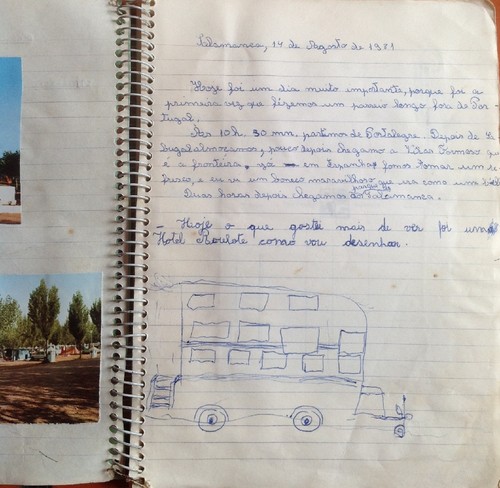 Salamanca, 14 de Agosto de 1981
Hoje foi um dia muito importante, porque foi a
primeira vez que fizemos um passeio longo fora de Por
tugal.
Às 10h. 30 mn. partimos de Portalegre. Depois de
Sabugal almoçamos, pouco depois chegamos a Vilar Formoso q
é a fronteira. Já em Espanha fomos tomar um re
fresco, e eu vi um boneco maravilhoso que era como uma
Duas horas depois chegamos ao parque de Salamanca.
- Hoje o que gostei mais de ver foi um
Hotel Roulote como vou desenhar.